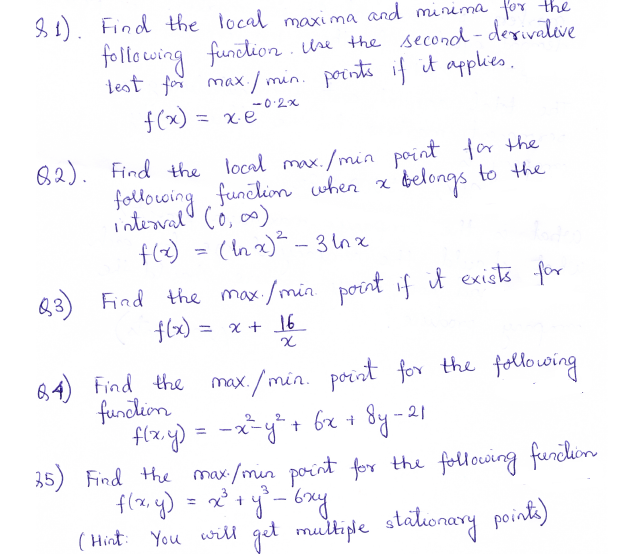 Q1). Find the local maxima and minima for the
following function. Use the second-derivative
test for max./min. points if it applies.
f(x) = x.e^-0.2x
Q2). Find the local max./min point for the
following function when x belongs to the
interval (0, ∞)
f(x) = (ln x)² - 3 ln x
Q3) Find the max./min. point if it exists for
f(x) = x + 16/x
Q4) Find the max./min. point for the following
function
f(x,y) = -x²-y² + 6x + 8y - 21
35) Find the max./min point for the following function
f(x,y) = x³ + y³ - 6xy
(Hint: You will get multiple stationary points)